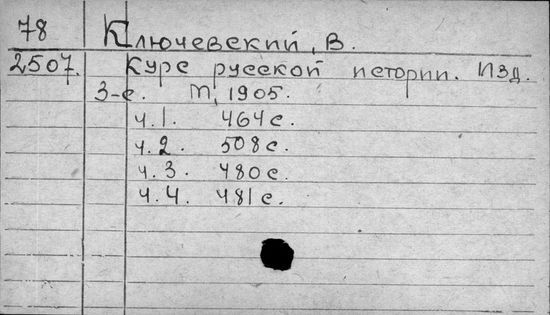 78 Ключевский, В.
2507. Курс русской истории. Изд.
3-е. М, 1905.
ч. 1. 464 с.
ч. 2. 508 с.
ч. 3. 480 с.
ч. 4. 481 с.